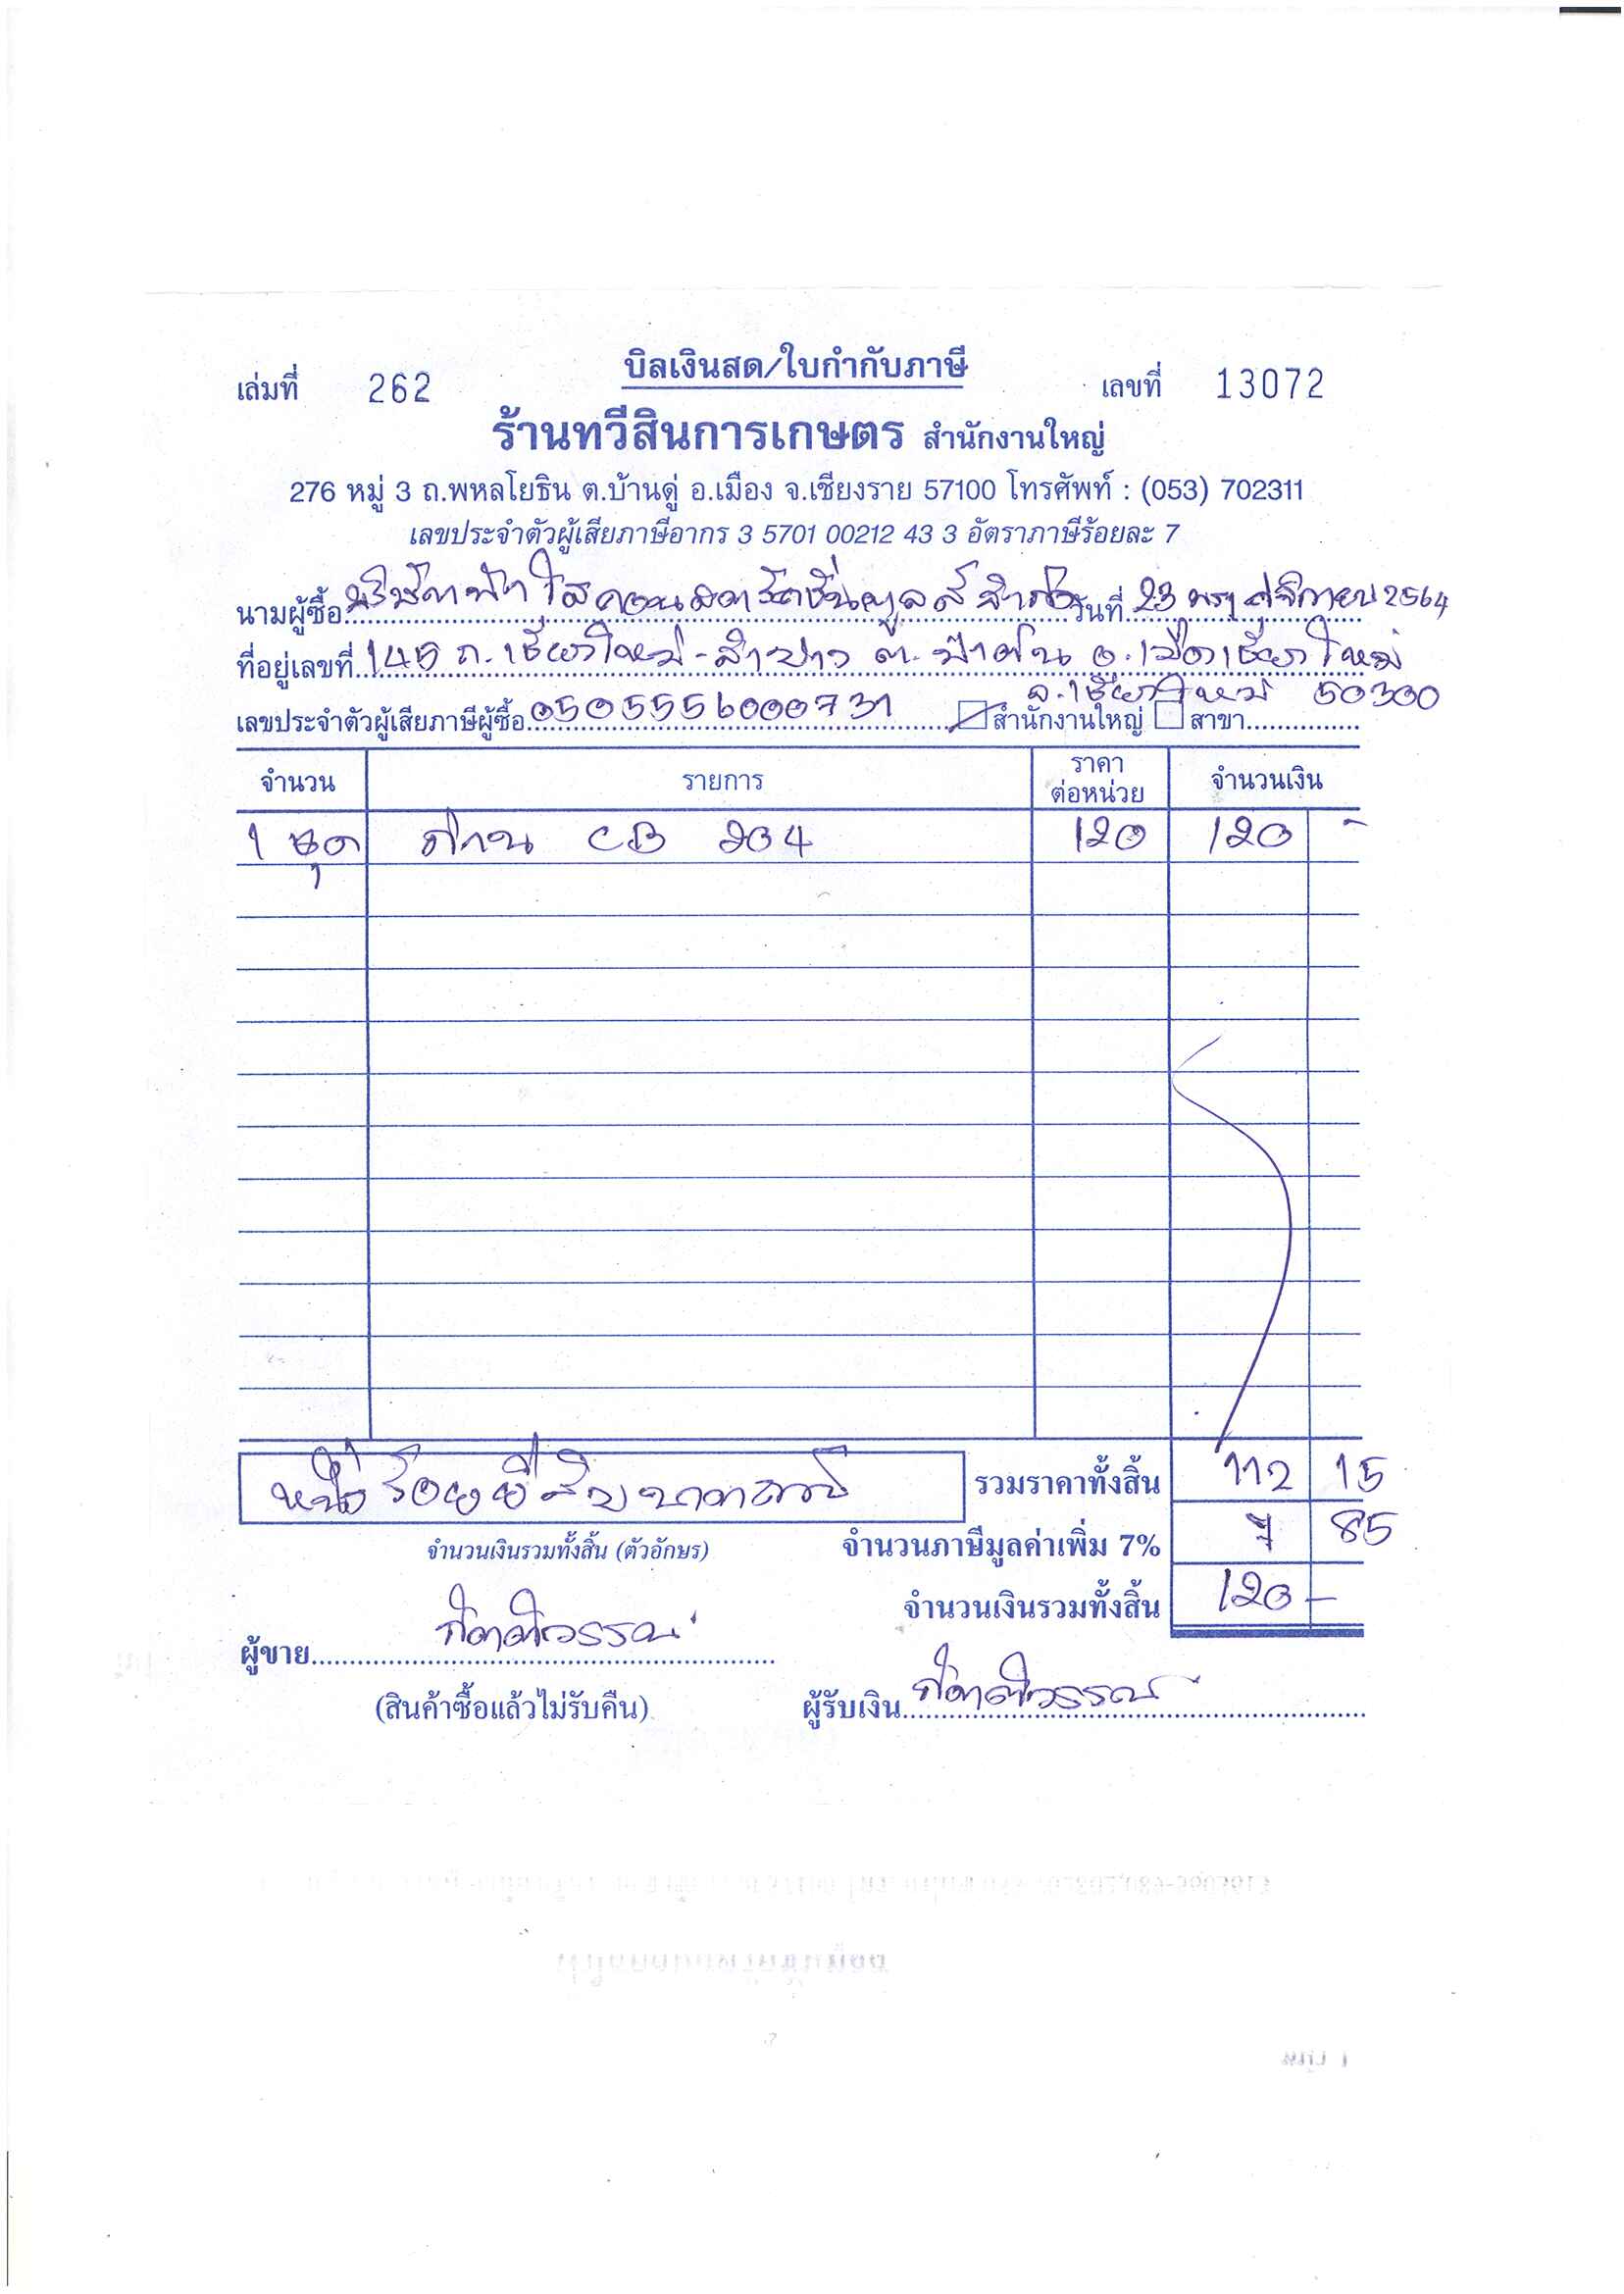 บิลเงินสด/ใบกำกับภาษี
เล่มที่ 262 เลขที่ 13072
ร้านทวีสินการเกษตร สำนักงานใหญ่
276 หมู่ 3 ถ.พหลโยธิน ต.บ้านดู่ อ.เมือง จ.เชียงราย 57100 โทรศัพท์ : (053) 702311
เลขประจำตัวผู้เสียภาษีอากร 3 5701 00212 43 3 อัตราภาษีร้อยละ 7
นามผู้ซื้อ วันที่ 23 พฤศจิกายน 2564
ที่อยู่เลขที่ 145 ถ.เชียงใหม่-ลำปาง ต.ป่าตัน อ.เมืองเชียงใหม่
จ.เชียงใหม่ 50300
เลขประจำตัวผู้เสียภาษีผู้ซื้อ 0505556000731 สำนักงานใหญ่ สาขา
จำนวน รายการ ราคาต่อหน่วย จำนวนเงิน
1 ชุด ถ่าน CB 204 120 120 -
หนึ่งร้อยยี่สิบบาทถ้วน รวมราคาทั้งสิ้น 112 15
จำนวนเงินรวมทั้งสิ้น (ตัวอักษร) จำนวนภาษีมูลค่าเพิ่ม 7% 7 85
จำนวนเงินรวมทั้งสิ้น 120 -
ผู้ขาย
(สินค้าซื้อแล้วไม่รับคืน) ผู้รับเงิน